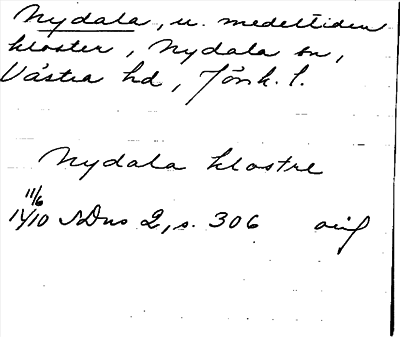 Nydala, u. medeltiden
kloster, Nydala sn,
Västra hd, Jönk. l.
Nydala klostre
11/6
1410 SDns 2, s. 306